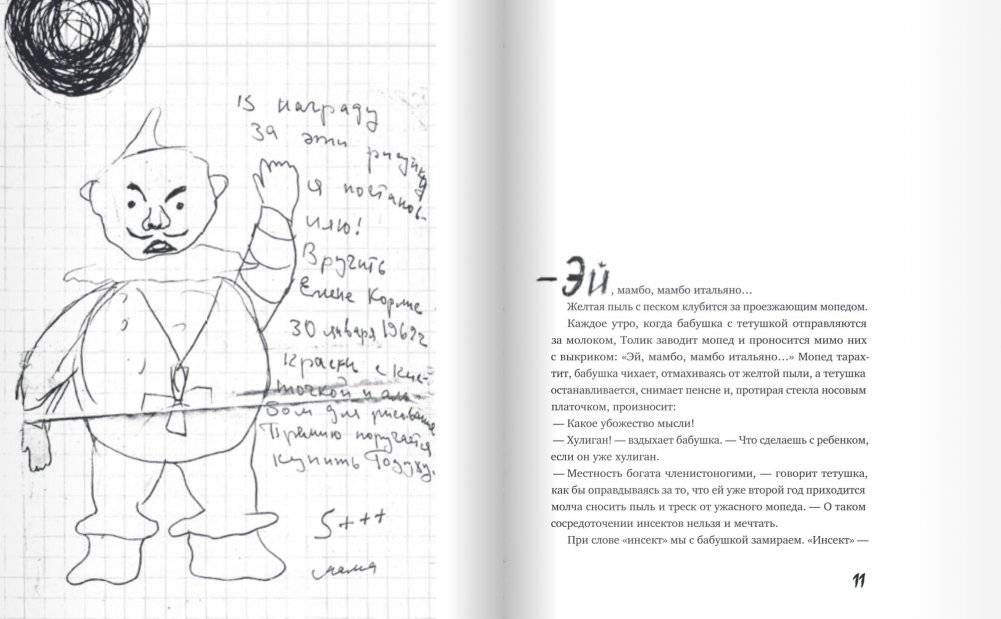 В награду
за эти рисунки
я постанов-
илю!
Вручить
Елене Корлис
30 января 1962 г
Краски с кис-
точкой и аль-
бом для рисования
Премию поручается
купить Тодуху.
5+++
мама
– Эй, мамбо, мамбо итальяно…
Желтая пыль с песком клубится за проезжающим мопедом.
Каждое утро, когда бабушка с тетушкой отправляются
за молоком, Толик заводит мопед и проносится мимо них
с выкриком: «Эй, мамбо, мамбо итальяно…» Мопед тарах-
тит, бабушка чихает, отмахиваясь от желтой пыли, а тетушка
останавливается, снимает пенсне и, протирая стекла носовым
платочком, произносит:
— Какое убожество мысли!
— Хулиган! — вздыхает бабушка. — Что сделаешь с ребенком,
если он уже хулиган.
— Местность богата членистоногими, — говорит тетушка,
как бы оправдываясь за то, что ей уже второй год приходится
молча сносить пыль и треск от ужасного мопеда. — О таком
сосредоточении инсектов нельзя и мечтать.
При слове «инсект» мы с бабушкой замираем. «Инсект» —
11